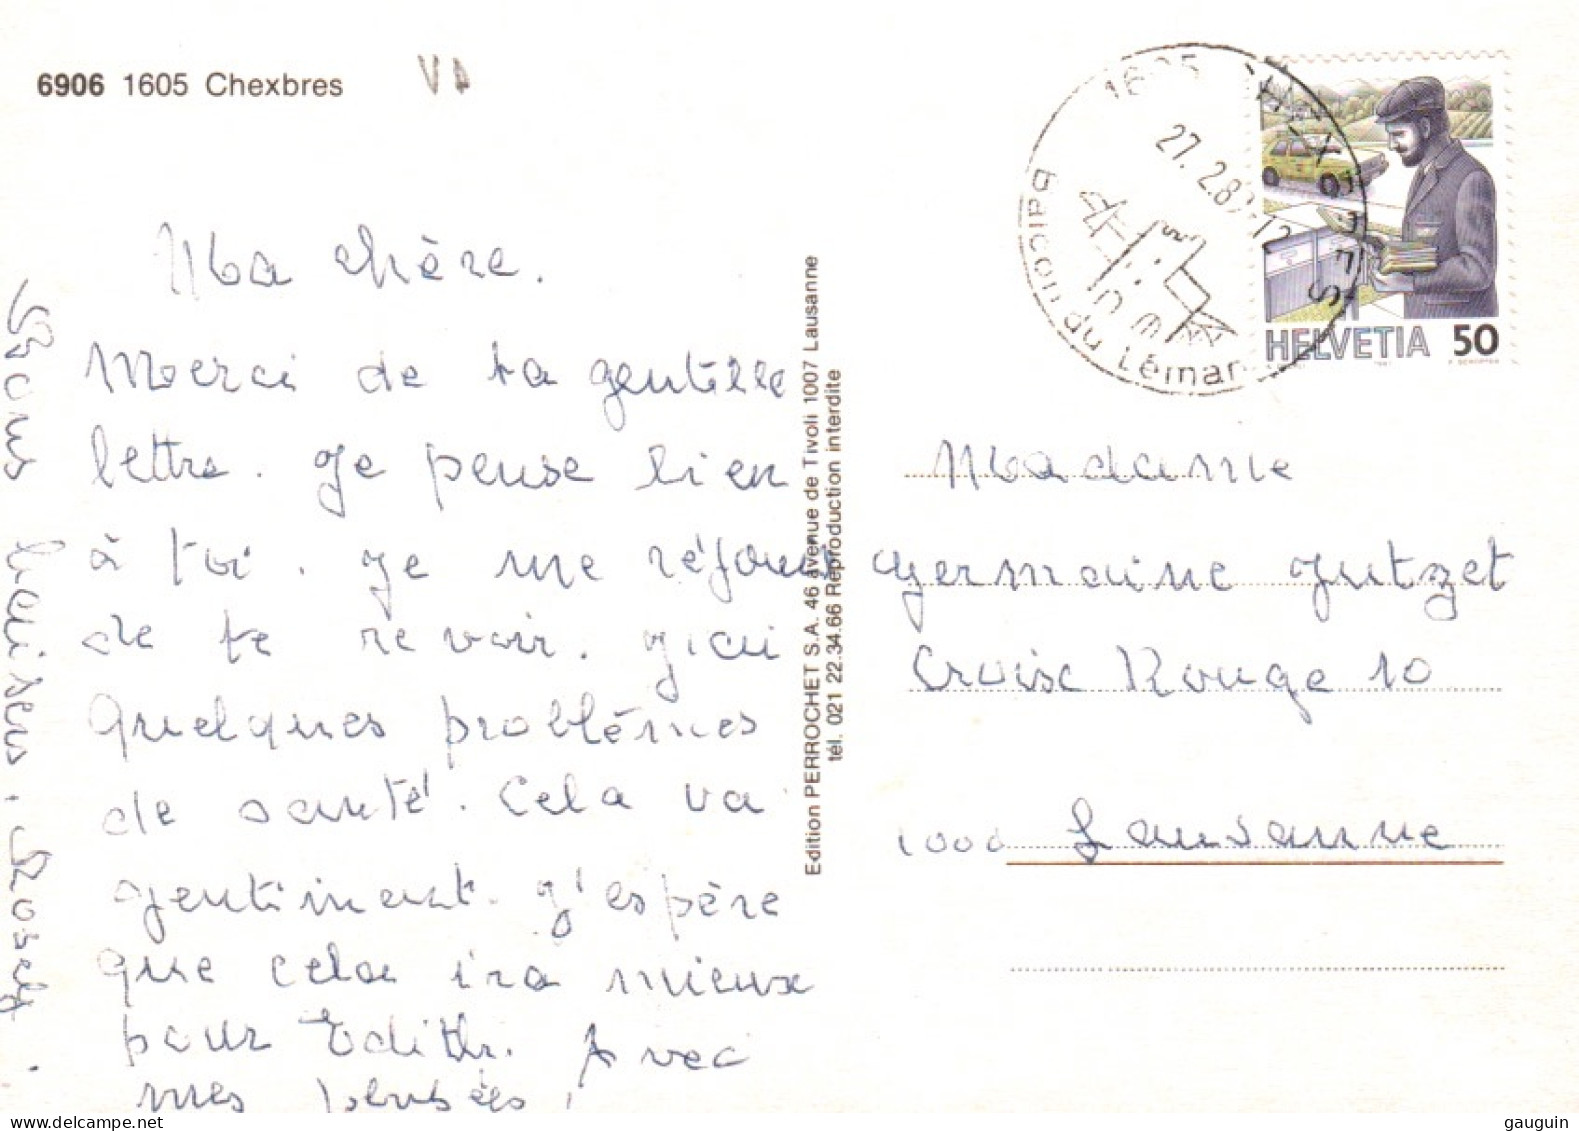 6906 1605 Chexbres
1605 CHEXBRES
27.2.89-12
Balcon du Léman
HELVETIA 50
Ma chère.
Merci de ta gentille
lettre. Je pense bien
à toi. Je me réjouis
de te revoir. J'ai
quelques problèmes
de santé. Cela va
gentiment. J'espère
que cela ira mieux
pour Edith. Avec
mes pensées,
Bons baisers. Rosely.
Edition PERROCHET S.A. 46 avenue de Tivoli 1007 Lausanne
tél. 021 22.34.66 Reproduction interdite
Madame
Germaine Jutzet
Croix Rouge 10
1000 Lausanne
gauguin